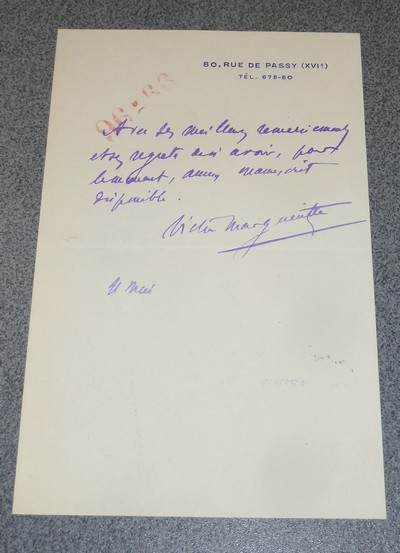 80, RUE DE PASSY (XVIe)
TÉL. 675-80
Avec ses meilleurs remerciements
et ses regrets de n'avoir, pour
le moment, aucun manuscrit
disponible.
Victor Margueritte
Mai